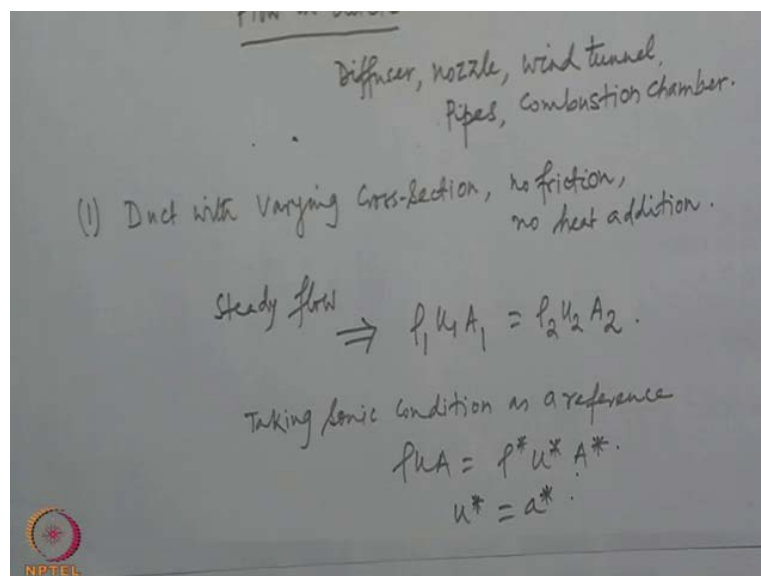 Flow in
Diffuser, nozzle, wind tunnel,
Pipes, Combustion chamber.
(1) Duct with Varying Cross-Section, no friction,
no heat addition.
Steady flow
⇒ ρ₁u₁A₁ = ρ₂u₂A₂.
Taking Sonic Condition as a reference
ρuA = ρ*u*A*.
u* = a*.
NPTEL